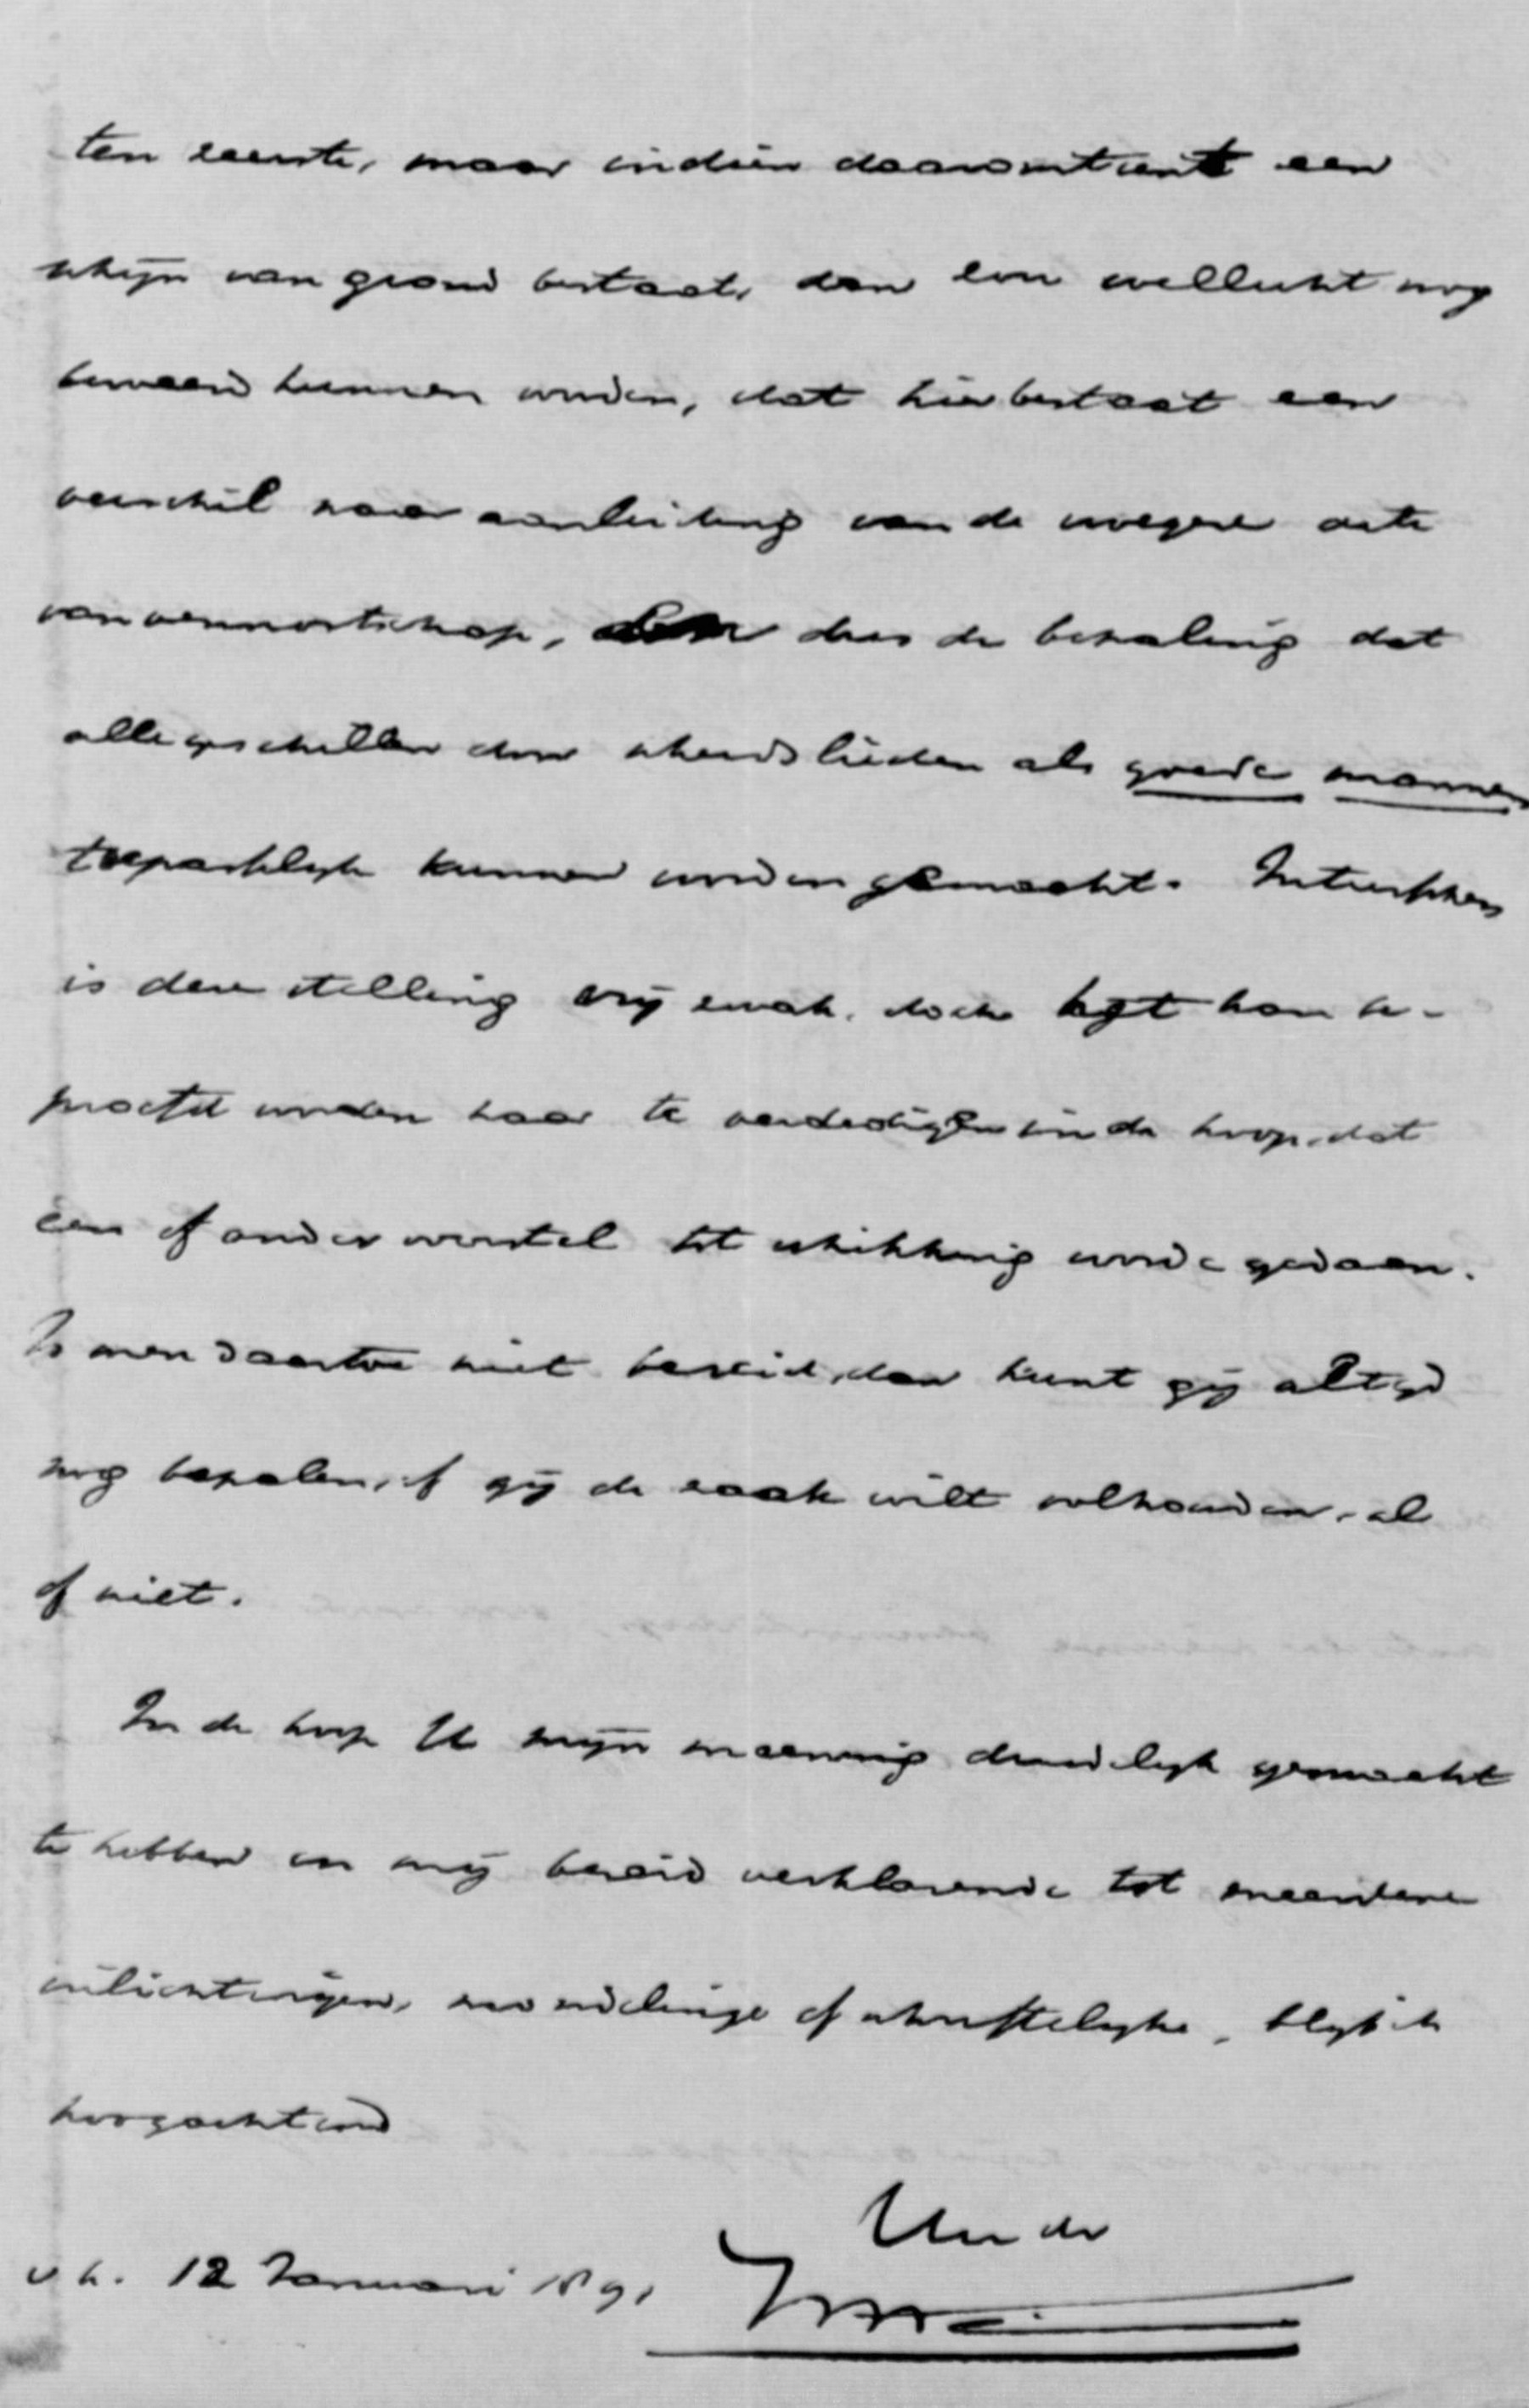 ten eerste, maar indien daaromtrent een
schijn van grond bestaat, dan zou wellicht nog
beweerd kunnen worden, dat hier bestaat een
verschil naar aanleiding van de vroegere acte
van vennootschap, dus de bepaling dat
alle geschillen door scheidslieden als goede mannen
toepasselijk kunnen worden gemaakt. Intusschen
is deze stelling vrij zwak, doch het kan be-
proefd worden haar te verdedigen in de hoop, dat
een of ander voorstel tot schikking worde gedaan.
Is men daartoe niet bereid, dan kunt gij altijd
nog bepalen, of gij de zaak wilt volhouden, al
of niet.
In de hoop U mijn meening duidelijk gemaakt
te hebben en mij bereid verklarende tot meerdere
inlichtingen, mondelinge of schriftelijke, blijf ik
hoogachtend
Uw dr
12 Januari 1891